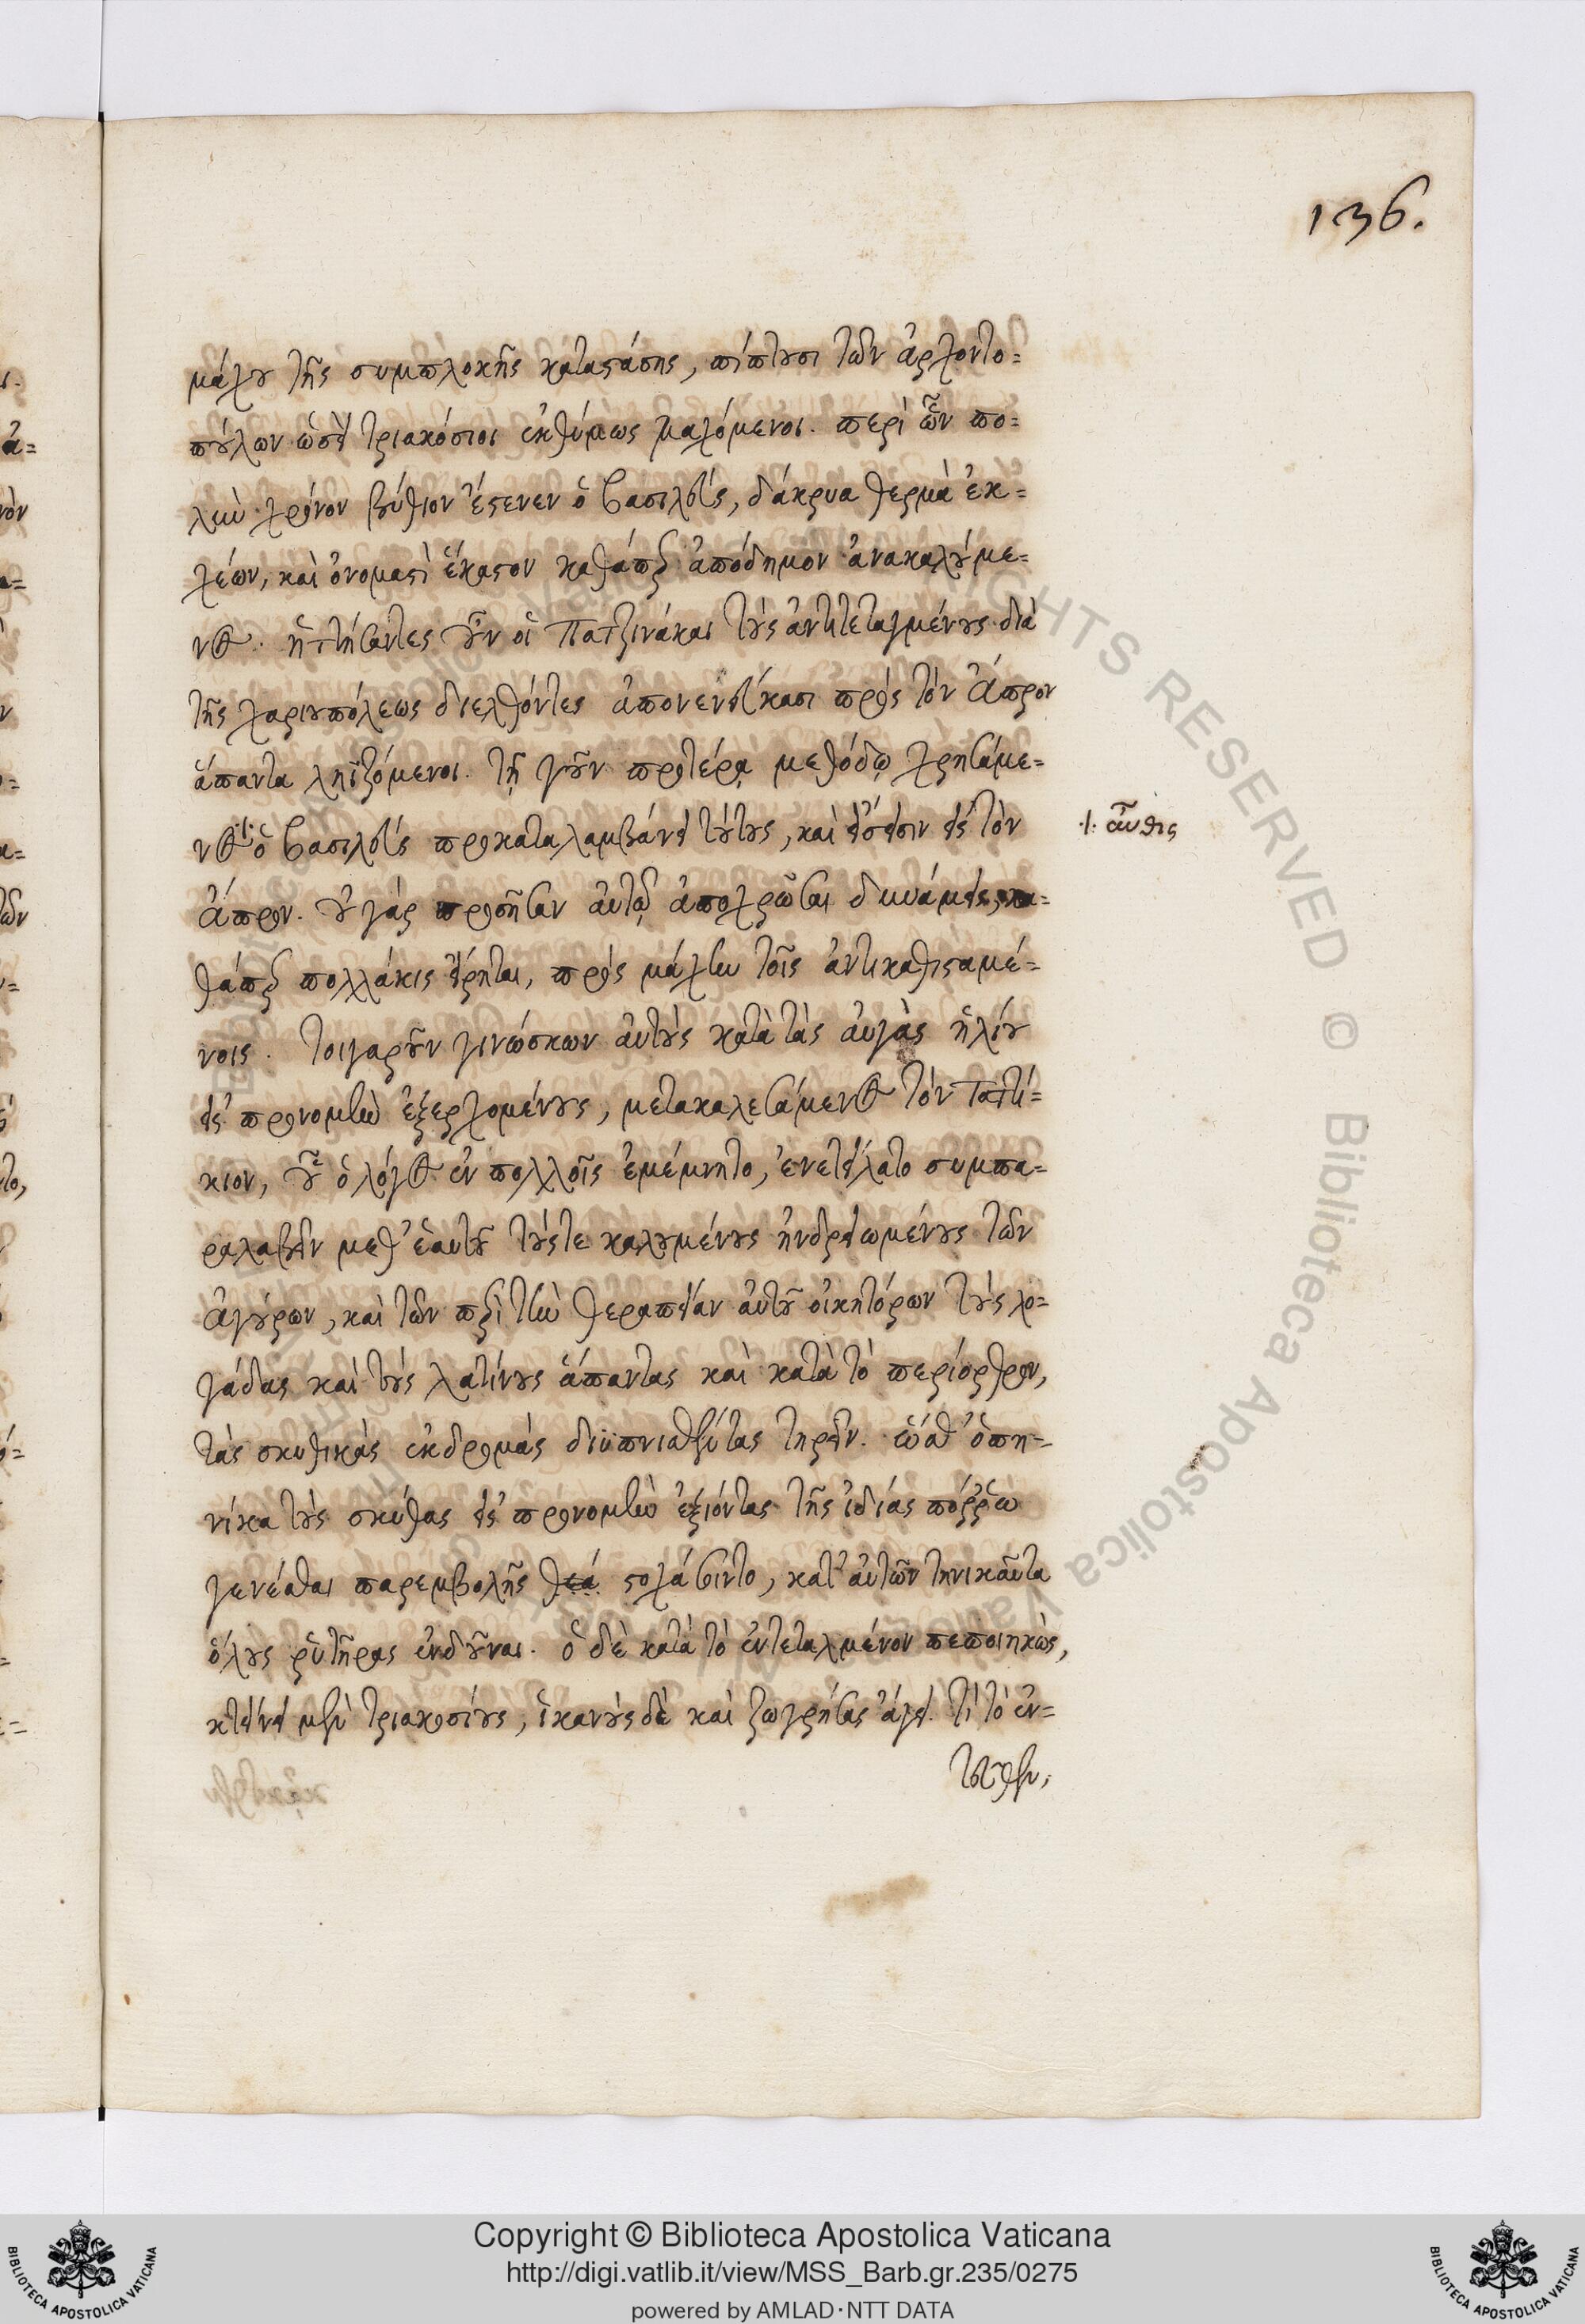 136.
μάχου τῆς συμπλοκῆς καταστάσης, πίπτουσι τῶν ἀρχοντο=
πούλων ὡσεὶ τριακόσιοι ἐκθύμως μαχόμενοι. περὶ ὧν πο=
λὺν χρόνον βύθιον ἔστενεν ὁ βασιλεύς, δάκρυα θερμὰ ἐκ=
χέων, καὶ ὀνομαστὶ ἕκαστον καθάπερ ἀπόδημον ἀνακαλούμε=
νος. ἡττήσαντες οὖν οἱ Πατζινάκαι τοὺς ἀντιτεταγμένους διὰ
τῆς χαριουπόλεως διελθόντες ἀπονενεύκασι πρὸς τὸν Ἄπρον
ἅπαντα ληϊζόμενοι. τῇ γοῦν προτέρᾳ μεθόδῳ χρησάμε=
νος ·/· ὁ βασιλεὺς προκαταλαμβάνει τούτους, καὶ εἴσεισιν εἰς τὸν
·/· αὖθις
Ἄπρον. οὐ γὰρ προσῆσαν αὐτῷ ἀποχρῶσαι δυνάμεις, κα=
θάπερ πολλάκις εἴρηται, πρὸς μάχην τοῖς ἀντικαθισταμέ=
νοις. τοιγαροῦν γινώσκων αὐτοὺς κατὰ τὰς αὐγὰς ἡλίου
εἰς προνομὴν ἐξερχομένους, μετακαλεσάμενος τὸν Τατί=
κιον, οὗ ὁ λόγος ἐν πολλοῖς ἐμέμνητο, ἐνετείλατο συμπα=
ραλαβεῖν μεθ' ἑαυτοῦ τούς τε καλουμένους ἠνδρειωμένους τῶν
ἀγούρων, καὶ τῶν περὶ τὴν θεραπείαν αὐτοῦ οἰκητόρων τοὺς λο=
γάδας καὶ τοὺς λατίνους ἅπαντας καὶ κατὰ τὸ περίορθρον,
τὰς σκυθικὰς ἐκδρομὰς διϋπνισθέντας τηρεῖν. ὥσθ' ὁπη=
νίκα τοὺς σκύθας εἰς προνομὴν ἐξιόντας τῆς ἰδίας πόῤῥω
γενέσθαι παρεμβολῆς θεά στοχάσαιντο, κατ' αὐτῶν τηνικαῦτα
ὅλους ῥυτῆρας ἐνδοῦναι. ὁ δὲ κατὰ τὸ ἐντεταλμένον πεποιηκώς,
κτείνει μὲν τριακοσίους, ἱκανοὺς δὲ καὶ ζωγρήσας ἄγει. τί τὸ ἐν=
τεῦθεν;
Copyright © Biblioteca Apostolica Vaticana
http://digi.vatlib.it/view/MSS_Barb.gr.235/0275
powered by AMLAD·NTT DATA